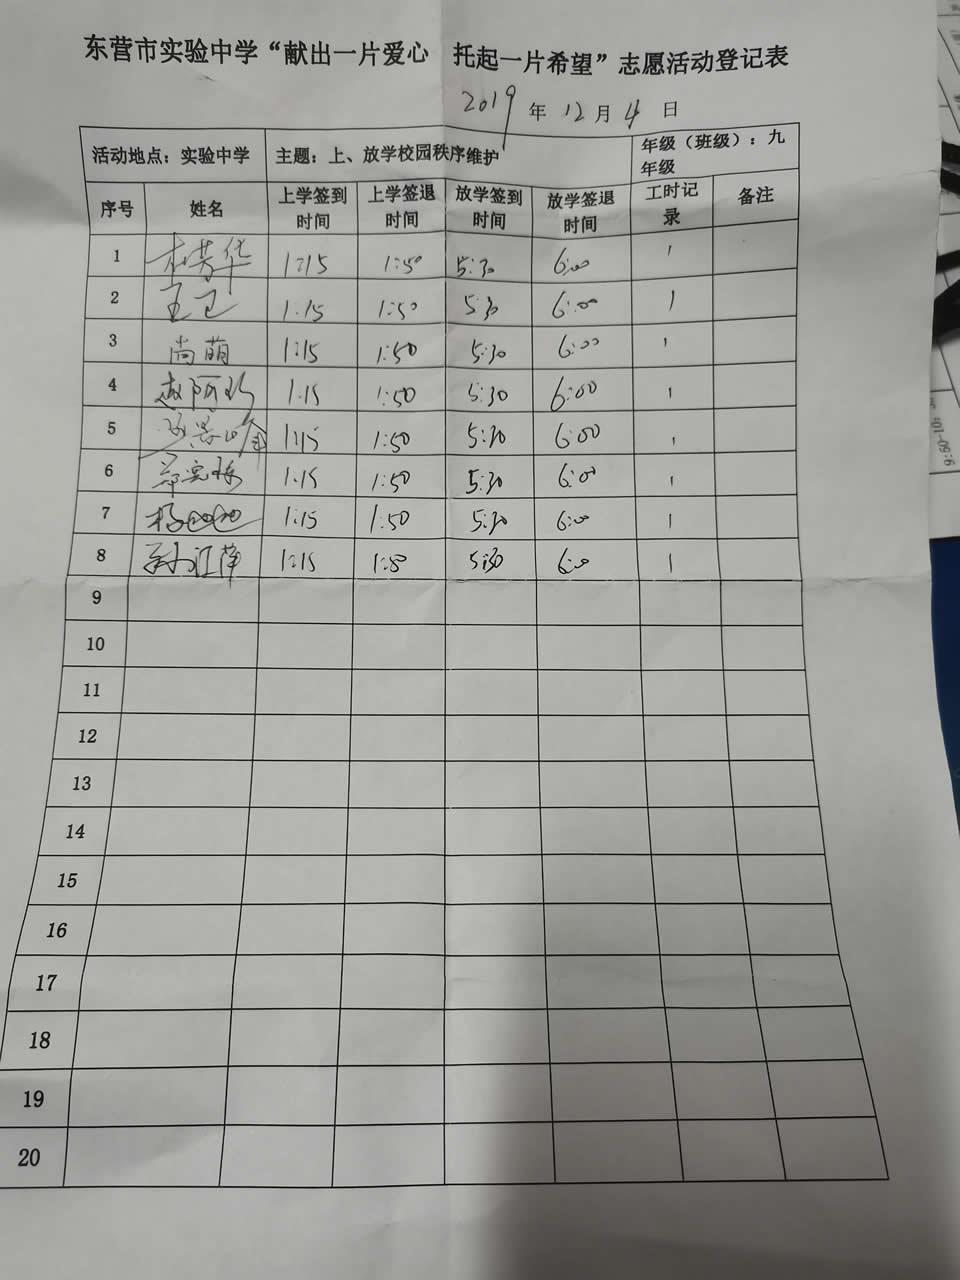 东营市实验中学“献出一片爱心 托起一片希望”志愿活动登记表
2019年12月4日
活动地点：实验中学 主题：上、放学校园秩序维护 年级（班级）：九年级
序号 姓名 上学签到时间 上学签退时间 放学签到时间 放学签退时间 工时记录 备注
1 杜芳华 1:15 1:50 5:30 6:00 1
2 王卫 1:15 1:50 5:30 6:00 1
3 尚萌 1:15 1:50 5:30 6:00 1
4 赵阿 1:15 1:50 5:30 6:00 1
5 1:15 1:50 5:30 6:00 1
6 1:15 1:50 5:30 6:00 1
7 杨 1:15 1:50 5:30 6:00 1
8 孙江萍 1:15 1:50 5:30 6:00 1
9
10
11
12
13
14
15
16
17
18
19
20